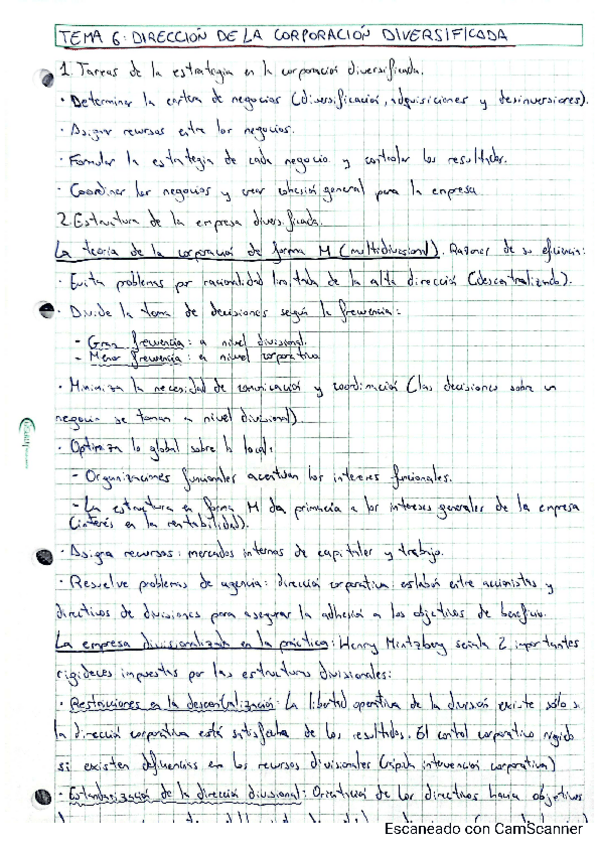 TEMA 6: DIRECCIÓN DE LA CORPORACIÓN DIVERSIFICADA
1. Tareas de la estrategia en la corporación diversificada.
· Determinar la cartera de negocios (diversificación, adquisiciones y desinversiones).
· Asignar recursos entre los negocios.
· Formular la estrategia de cada negocio y controlar los resultados.
· Coordinar los negocios y crear cohesión general para la empresa
2. Estructura de la empresa diversificada.
La teoría de la corporación de forma M (multidivisional). Razones de su eficiencia:
· Evita problemas por racionalidad limitada de la alta dirección (descentralizando).
· Divide la toma de decisiones según la frecuencia:
- Gran frecuencia: a nivel divisional.
- Menor frecuencia: a nivel corporativo
· Minimiza la necesidad de comunicación y coordinación (las decisiones sobre un
negocio se toman a nivel divisional)
· Optimiza lo global sobre lo local:
- Organizaciones funcionales acentúan los intereses funcionales.
- La estructura en forma M da primacía a los intereses generales de la empresa
(interés en la rentabilidad).
· Asigna recursos: mercados internos de capitales y trabajo.
· Resuelve problemas de agencia: dirección corporativa eslabón entre accionistas y
directivos de divisiones para asegurar la adhesión a los objetivos de beneficio.
La empresa divisionalizada en la práctica: Henry Mintzberg señala 2 importantes
rigideces impuestas por las estructuras divisionales:
· Restricciones en la descentralización: La libertad operativa de la división existe sólo si
la dirección corporativa está satisfecha de los resultados. El control corporativo rígido
si existen deficiencias en los recursos divisionales (rápida intervención corporativa)
· Estandarización de la dirección divisional: Orientación de los directivos hacia objetivos
Escaneado con CamScanner